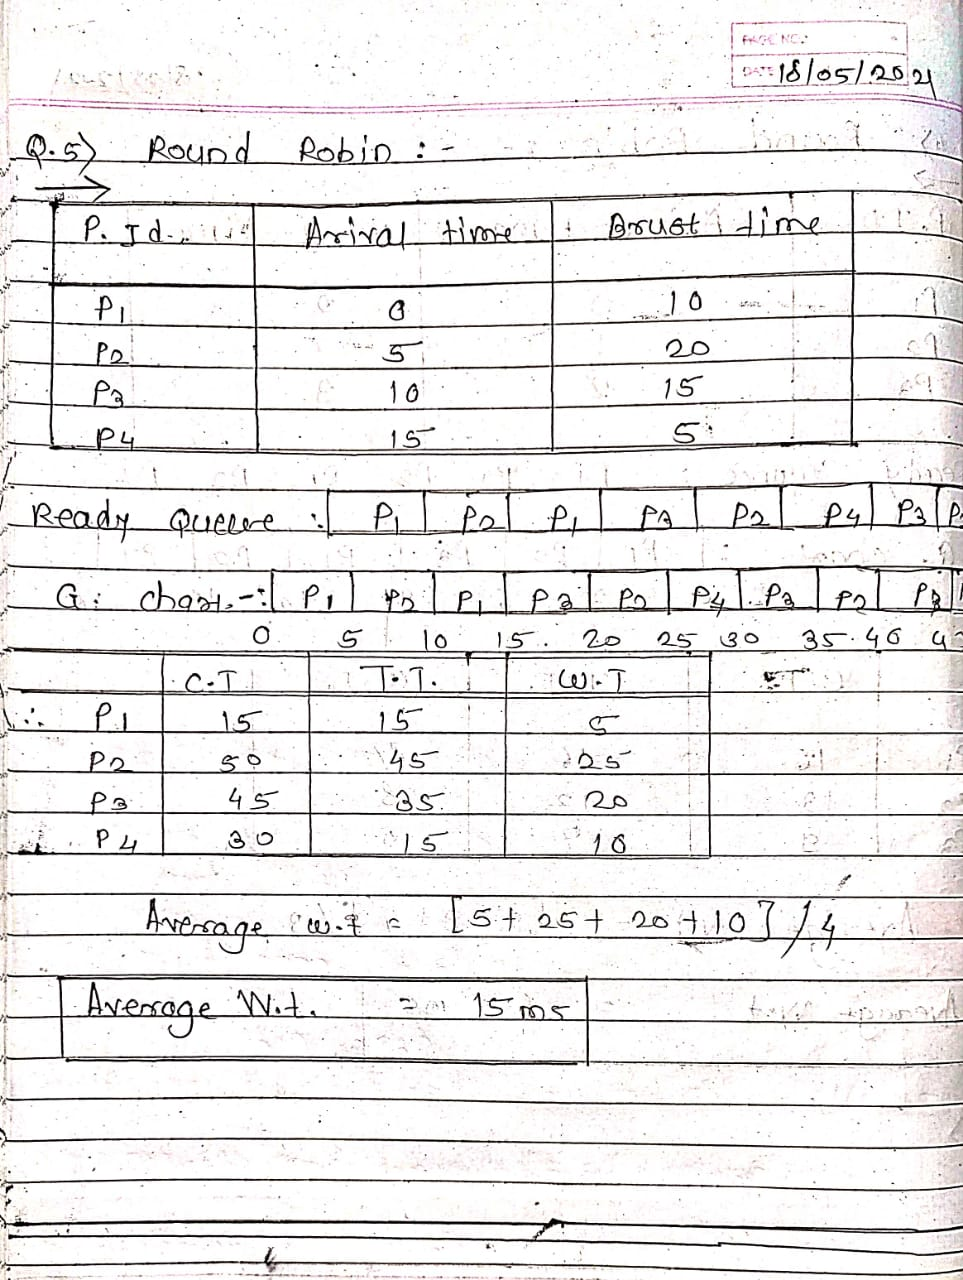 PAGE NO.:
DATE: 18/05/2021
Q.5) Round Robin :-
P. Id. Arival time Brust time
P1 0 10
P2 5 20
P3 10 15
P4 15 5
Ready Queue : P1 P2 P1 P3 P2 P4 P3 P
G. chart :- P1 P2 P1 P3 P2 P4 P3 P2 P3
0 5 10 15 20 25 30 35 40 4
C.T T.T. W.T
∴ P1 15 15 5
P2 50 45 25
P3 45 35 20
P4 30 15 10
Average w.t = [5+25+20+10]/4
Average W.t. = 15 ms